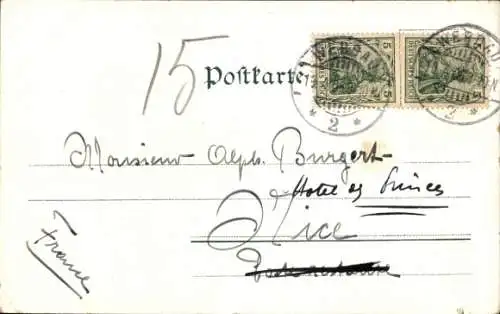 15
Postkarte
5 5
2 2
Monsieur Alph. Burgert
Hotel des Princes
Nice
France